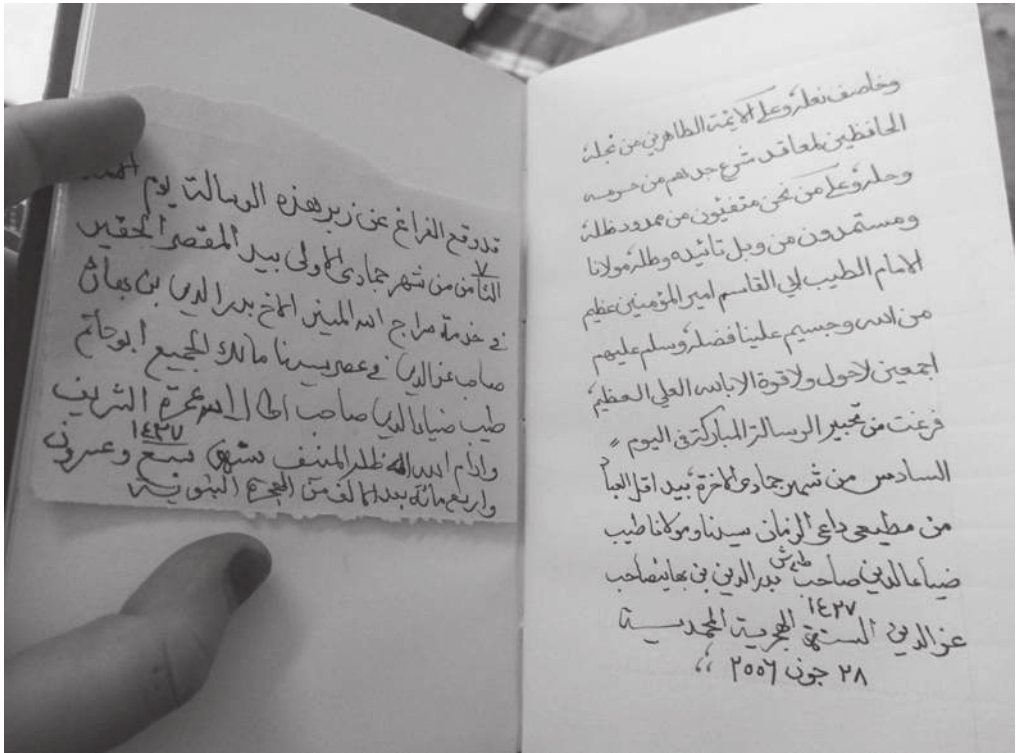 وخاصف نعله وعلى الائمة الطاهرين من نجله
الحافظين لمعاقد شرع جدهم من حرمه
وحله وعلى من نحن متفيئون من ممدود ظله
ومستمدون من وبل تائيده وطله مولانا
الامام الطيب ابي القاسم امير المؤمنين عظيم
من الله وجسيم علينا فضله وسلم عليهم
اجمعين لاحول ولاقوة الا بالله العلي العظيم
فرغت من تحبير الرسالة المباركة في اليوم
السادس من شهر جمادى الاخرة بيد اقل العباد
من مطيعي داعي الزمان سيدنا ومولانا طيب
ضياء الدين صاحب طع ش بدر الدين بن بهائي صاحب
عز الدين السنة ١٤٢٧ الهجرية المحمدية
٢٨ جون ٢٠٠٦
قد وقع الفراغ عن زبر هذه الرسالة يوم
الثامن ٧ من شهر جمادى الاولى بيد المقصر الحقير
في خدمة سراج الله المنير الاخ بدر الدين بن بهائي
صاحب عز الدين في عصر سيدنا مالك الجميع ابو حاتم
طيب ضياء الدين صاحب اطال الله عمره الشريف
وادام الله ظله المنيف سنة ١٤٢٧ سبع وعشرون
واربع مائة بعد الالف من الهجرة النبوية